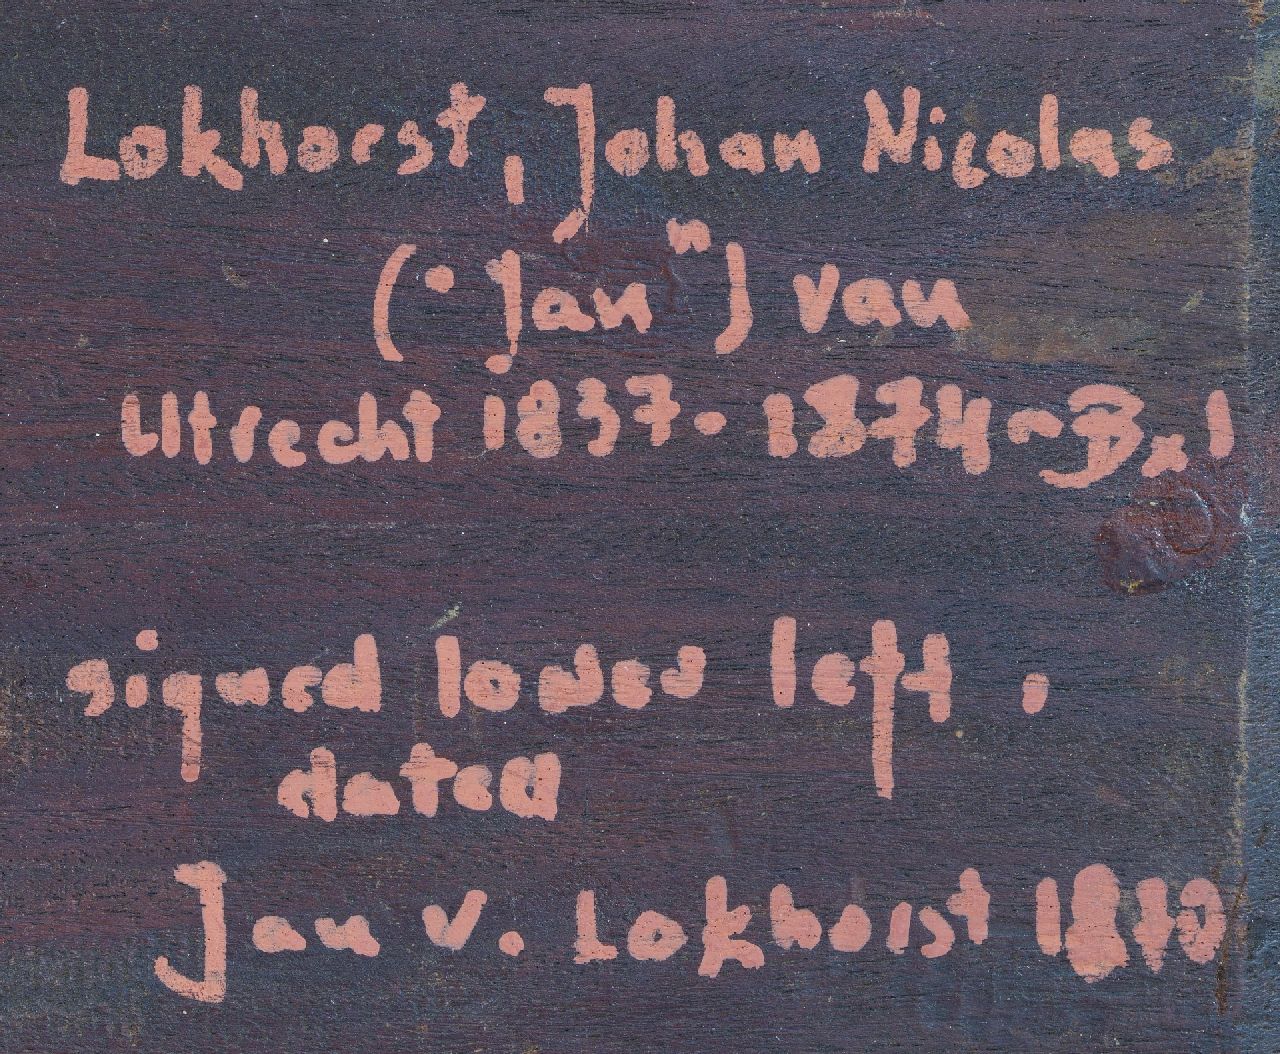 Lokhorst, Johan Nicolas
("Jan") van
Utrecht 1837-1874-Bxl
signed lower left.
dated
Jan v. Lokhorst 1870